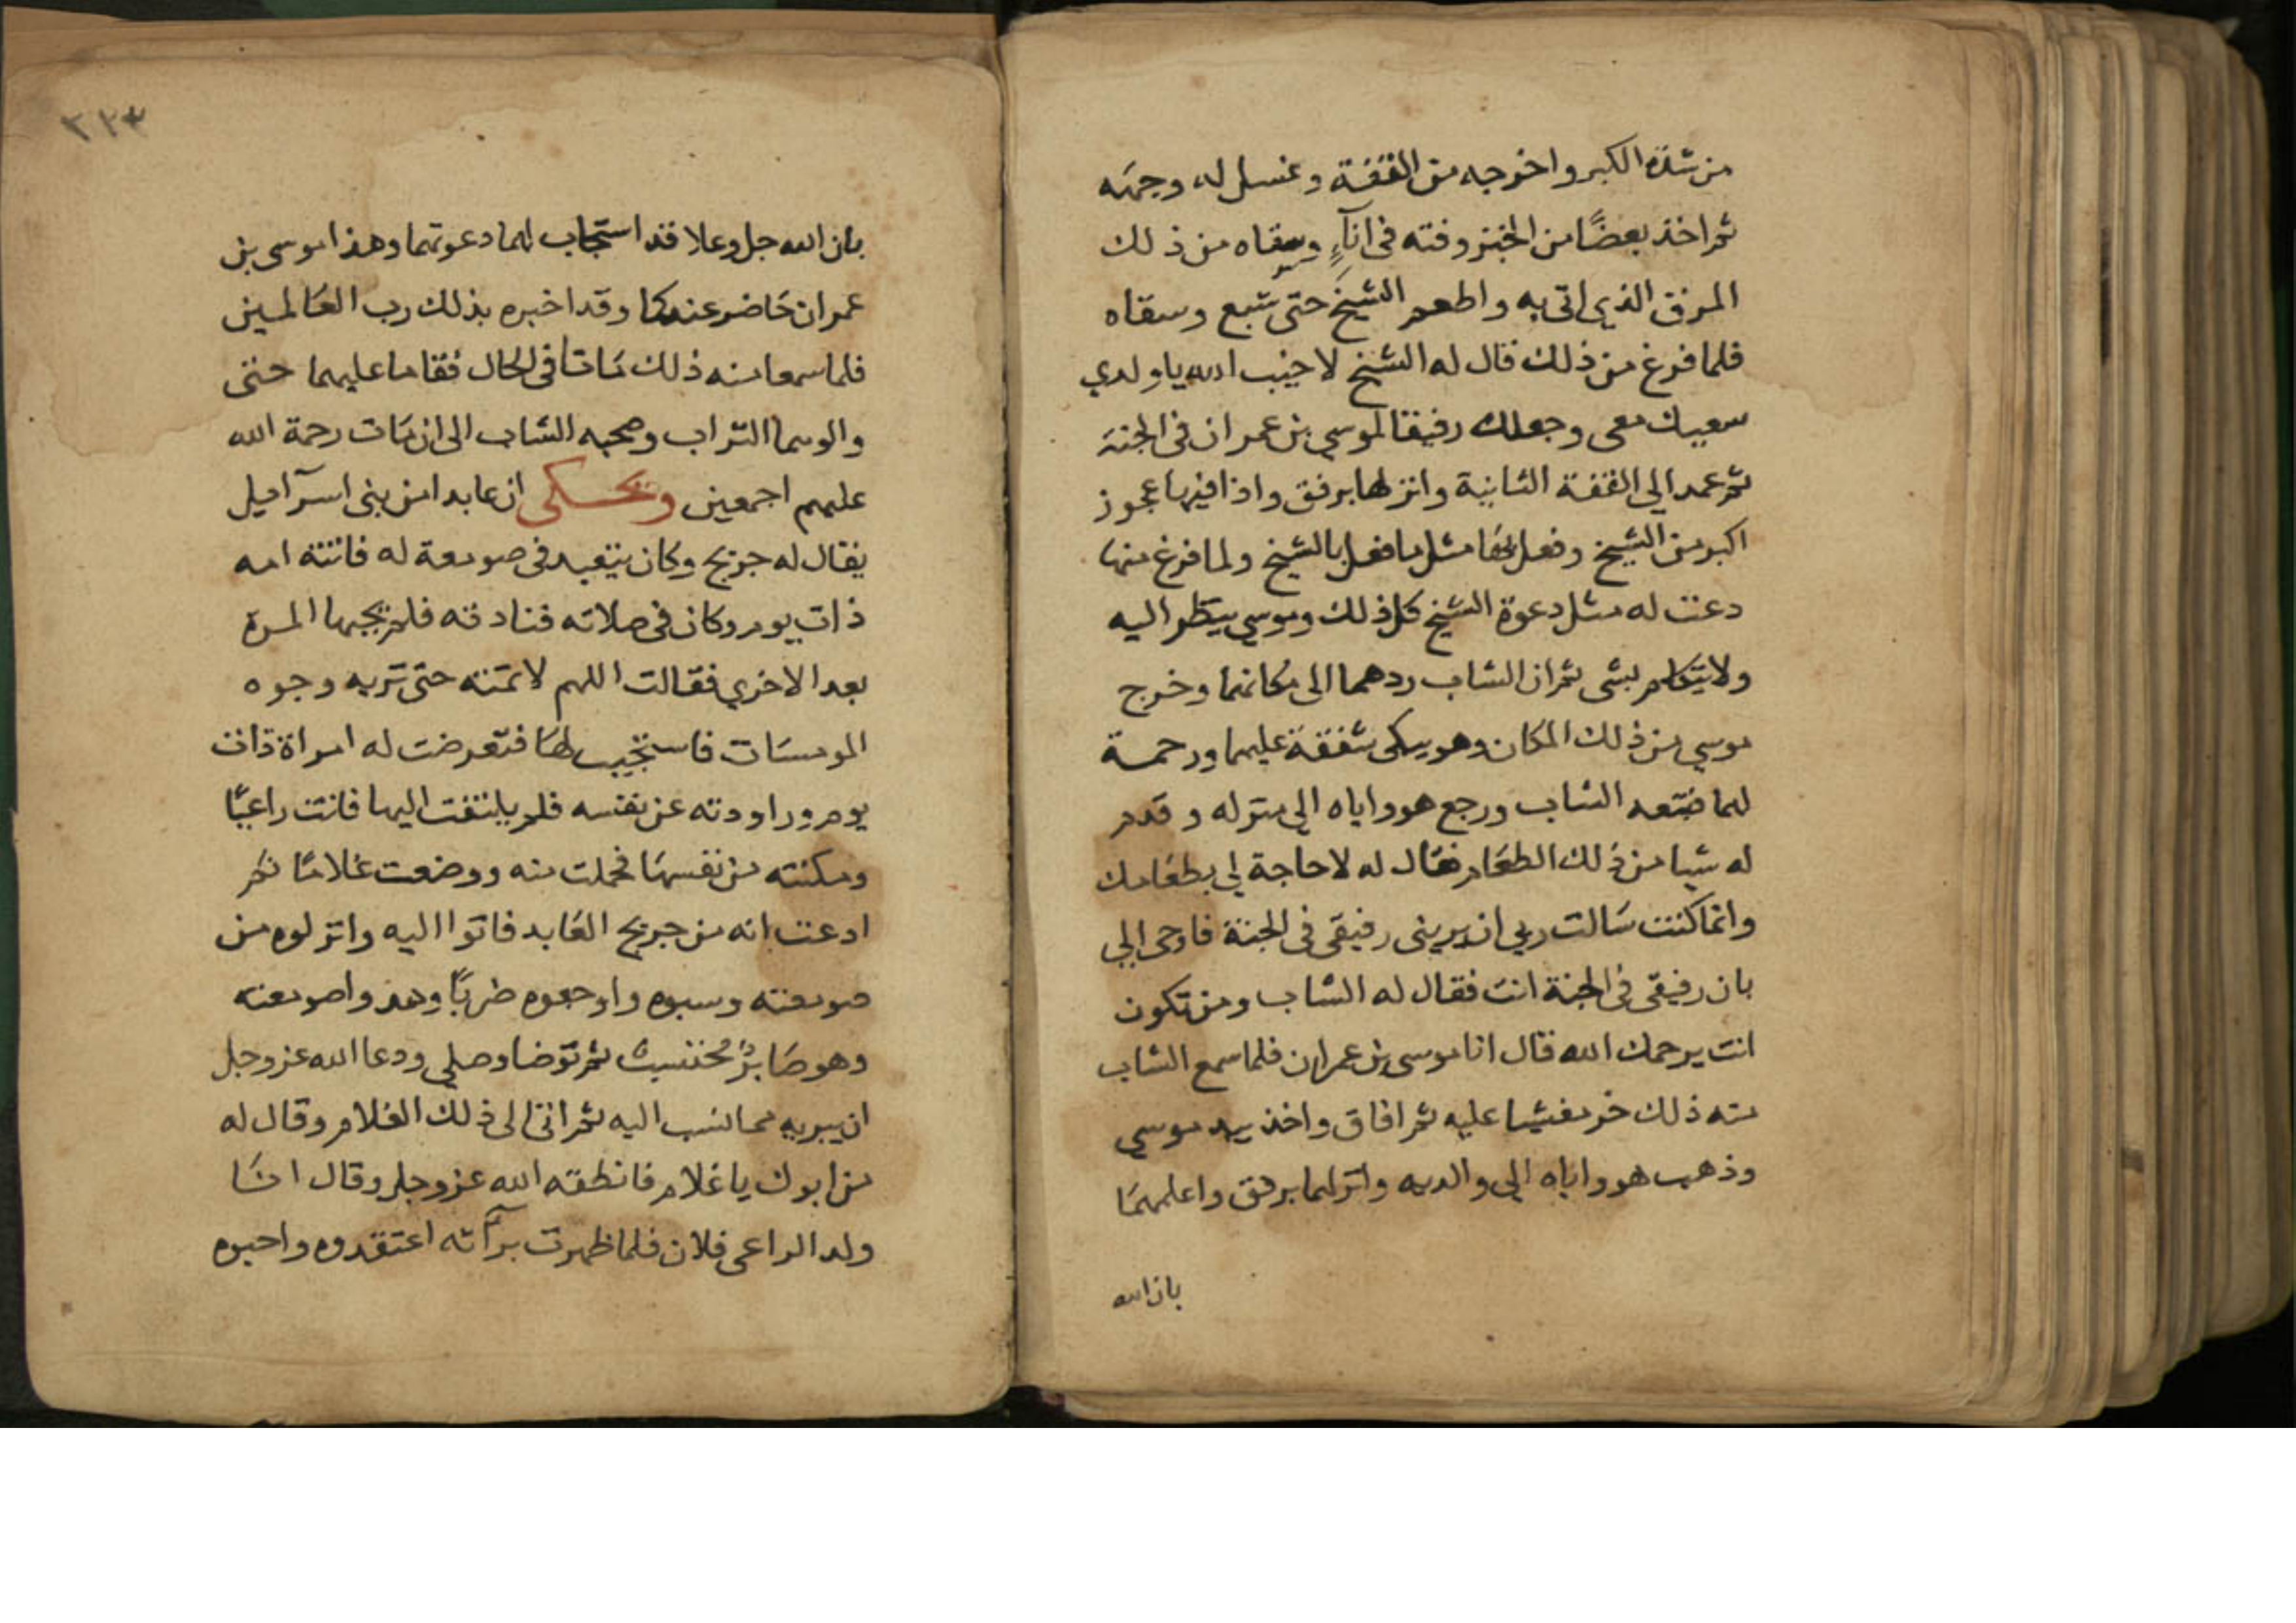 من شدة الكبر واخرجه من القفة وغسل له وجهه
ثم اخذ بعضًا من الخبز وفته في انآءٍ وسقاه من ذلك
المرق الذي اتى به واطعم الشيخ حتى شبع وسقاه
فلما فرغ من ذلك قال له الشيخ لا خيب الله يا ولدي
سعيك معى وجعلك رفيقا لموسي بن عمران في الجنة
ثم عمد الي القفة الثانية وانزلها برفق واذا فيها عجوز
اكبر من الشيخ وفعل بها مثل ما فعل بالشيخ ولما فرغ منها
دعت له مثل دعوة الشيخ كل ذلك وموسي ينظر اليه
ولا يتكلم بشى ثم ان الشاب ردهما الى مكانهما وخرج
موسي من ذلك المكان وهو يبكى شفقة عليهما ورحمة
لهما فتبعه الشاب ورجع هو واياه الي منزله وقدم
له شيا من ذلك الطعام فقال له لا حاجة لي بطعامك
وانما كنت سالت ربي ان يريني رفيقي في الجنة فاوحى الي
بان رفيقى في الجنة انت فقال له الشاب ومن تكون
انت يرحمك الله قال انا موسى بن عمران فلما سمع الشاب
منه ذلك خر مغشيا عليه ثم افاق واخذ بيد موسي
وذهب هو واياه الي والديه وانزلهما برفق واعلمهما
بان الله
٣٢٣
بان الله جل وعلا قد استجاب لهما دعوتهما وهذا موسى بن
عمران حاضر عندكما وقد اخبره بذلك رب العالمين
فلما سمعا منه ذلك ماتا في الحال فقاما عليهما حتى
والوهما التراب وصحبه الشاب الى ان مات رحمة الله
عليهم اجمعين ويحكى ان عابدا من بنى اسرآئيل
يقال له جريج وكان يتعبد في صومعة له فاتته امه
ذات يوم وكان في صلاته فنادته فلم يجبها المرة
بعد الاخري فقالت اللهم لا تمته حتى تريه وجوه
المومسات فاستجيب لها فتعرضت له امراة ذات
يوم وراودته عن نفسه فلم يلتفت اليها فاتت راعيًا
ومكنته من نفسها فحملت منه ووضعت غلامًا ثم
ادعت انه من جريج العابد فاتوا اليه وانزلوه من
صومعته وسبوه واوجعوه ضربًا وهدوا صومعته
وهو صابرٌ محتسب ثم توضا وصلي ودعا الله عز وجل
ان يبريه مما نسب اليه ثم اتى الى ذلك الغلام وقال له
من ابوك يا غلام فانطقه الله عز وجل وقال انا
ولد الراعى فلان فلما ظهرت برآته اعتقدوه واحبوه